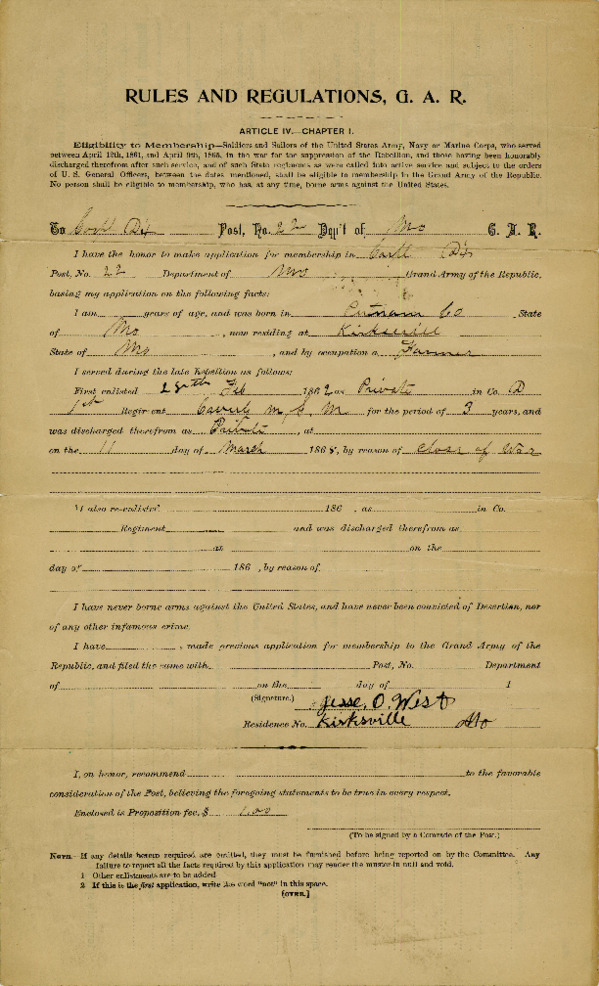 RULES AND REGULATIONS, G. A. R.
ARTICLE IV.—CHAPTER I.
Eligibility to Membership—Soldiers and Sailors of the United States Army, Navy or Marine Corps, who served
between April 12th, 1861, and April 9th, 1865, in the war for the suppression of the Rebellion, and those having been honorably
discharged therefrom after such service, and of such State regiments as were called into active service and subject to the orders
of U. S. General Officers, between the dates mentioned, shall be eligible to membership in the Grand Army of the Republic.
No person shall be eligible to membership, who has, at any time, borne arms against the United States.
To Corll Dix Post, No. 22 Dep't of Mo G. A. R.
I have the honor to make application for membership in Corll Dix
Post, No. 22 Department of Mo Grand Army of the Republic,
basing my application on the following facts:
I am years of age, and was born in Putnam Co State
of Mo , was residing at Kirksvill
State of Mo , and by occupation a Farmer
I served during the late Rebellion as follows:
First enlisted 28th Feb 1862 as Private in Co. D
1st Regiment m S M for the period of 3 years, and
was discharged therefrom as , at
on the 11 day of March 1865, by reason of close of War
I also re-enlisted 186 , as in Co.
Regiment and was discharged therefrom as
at on the
day of 186 , by reason of
I have never borne arms against the United States, and have never been convicted of Desertion, nor
of any other infamous crime.
I have , made previous application for membership to the Grand Army of the
Republic, and filed the same with Post, No. Department
of on the day of 1
(Signature.) Jesse. O. West
Residence No. Kirksville Mo
I, on honor, recommend to the favorable
consideration of the Post, believing the foregoing statements to be true in every respect.
Enclosed is Proposition fee, $ 1.00
(To be signed by a Comrade of the Post.)
NOTE—If any details herein required are omitted, they must be furnished before being reported on by the Committee. Any
failure to report all the facts required by this application may render the muster-in null and void.
1 Other enlistments are to be added
2 If this is the first application, write the word "not" in this space.
[OVER.]